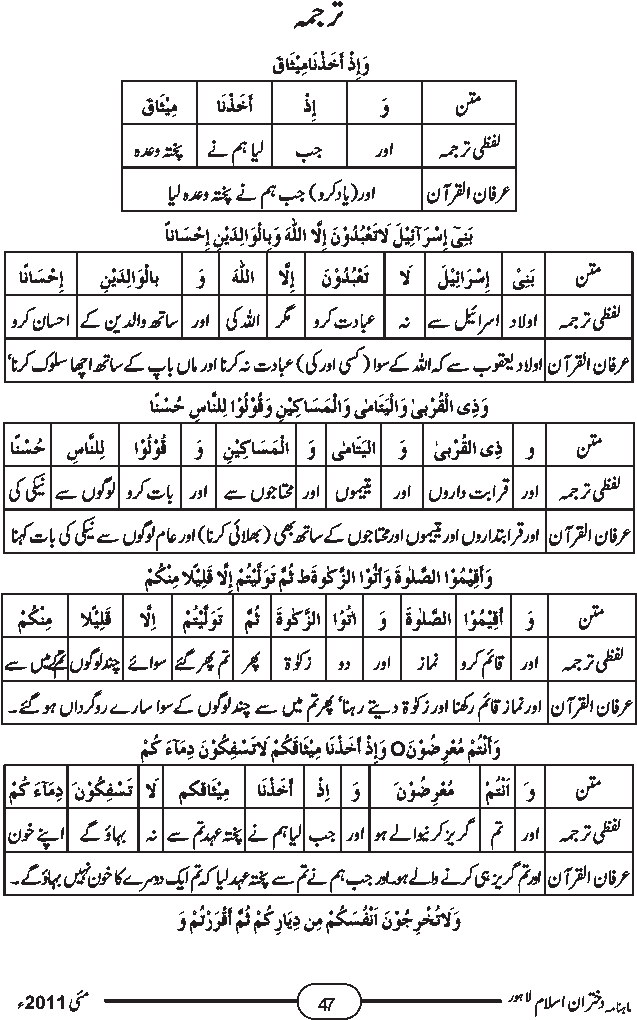 ترجمہ
وَإِذْ أَخَذْنَا مِيْثَاقَ
متن وَ إِذْ أَخَذْنَا مِيْثَاقَ
لفظی ترجمہ اور جب لیا ہم نے پختہ وعدہ
عرفان القرآن اور (یاد کرو) جب ہم نے پختہ وعدہ لیا
بَنِيٓ إِسْرَآئِيْلَ لَاتَعْبُدُوْنَ إِلَّا اللّٰهَ وَبِالْوَالِدَيْنِ إِحْسَاناً
متن بَنِيْ إِسْرَائِيْلَ لَا تَعْبُدُوْنَ إِلَّا اللّٰهَ وَ بِالْوَالِدَيْنِ إِحْسَانًا
لفظی ترجمہ اولاد اسرائیل سے نہ عبادت کرو مگر اللہ کی اور ساتھ والدین کے احسان کرو
عرفان القرآن اولاد یعقوب سے کہ اللہ کے سوا (کسی اور کی) عبادت نہ کرنا اور ماں باپ کے ساتھ اچھا سلوک کرنا‘
وَذِي الْقُرْبىٰ وَالْيَتَامىٰ وَالْمَسَاكِيْنِ وَقُوْلُوْا لِلنَّاسِ حُسْنًا
متن و ذِي الْقُرْبىٰ وَ الْيَتَامىٰ وَ الْمَسَاكِيْنِ وَ قُوْلُوْا لِلنَّاسِ حُسْنًا
لفظی ترجمہ اور قرابت داروں اور یتیموں اور محتاجوں سے اور بات کرو لوگوں سے نیکی کی
عرفان القرآن اور قرابتداروں اور یتیموں اور محتاجوں کے ساتھ بھی (بھلائی کرنا) اور عام لوگوں سے نیکی کی بات کہنا
وَأَقِيْمُوْا الصَّلٰوةَ وَآتُوْا الزَّكٰوةَ ط ثُمَّ تَوَلَّيْتُمْ إِلَّا قَلِيْلًا مِنْكُمْ
متن وَ أَقِيْمُوْا الصَّلٰوةَ وَ اٰتُوْا الزَّكٰوةَ ثُمَّ تَوَلَّيْتُمْ اِلَّا قَلِيْلًا مِنْكُمْ
لفظی ترجمہ اور قائم کرو نماز اور دو زکوٰۃ پھر تم پھر گئے سوائے چند لوگوں تم میں سے
عرفان القرآن اور نماز قائم رکھنا اور زکوٰۃ دیتے رہنا‘ پھر تم میں سے چند لوگوں کے سوا سارے روگرداں ہو گئے۔
وَأَنْتُمْ مُعْرِضُوْنَ O وَإِذْ أَخَذْنَا مِيْثَاقَكُمْ لَاتَسْفِكُوْنَ دِمَآءَ كُمْ
متن وَ اَنْتُمْ مُعْرِضُوْنَ وَ إِذْ أَخَذْنَا مِيْثَاقَكم لَا تَسْفِكُوْنَ دِمَآءَ كُمْ
لفظی ترجمہ اور تم گریز کرنیوالے ہو اور جب لیا ہم نے پختہ عہد تم سے نہ بہاؤ گے اپنے خون
عرفان القرآن اور تم گریز ہی کرنے والے ہو۔ اور جب ہم نے تم سے پختہ عہد لیا کہ تم ایک دوسرے کا خون نہیں بہاؤ گے۔
وَلَاتُخْرِجُوْنَ اَنْفُسَكُمْ مِن دِيَارِكُمْ ثُمَّ أَقْرَرْتُمْ وَ
ماہنامہ دختران اسلام لاہور 47 مئی 2011ء